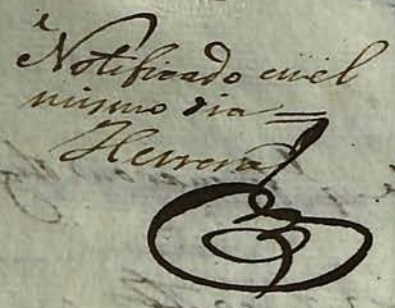 Notificado en el
mismo dia =
Herrera